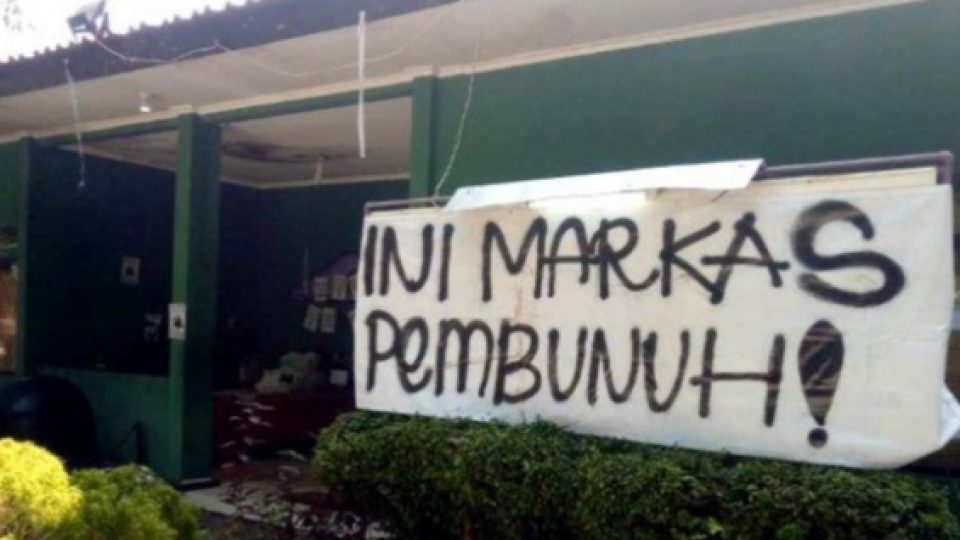 INI MARKAS
PeMBUNUH!